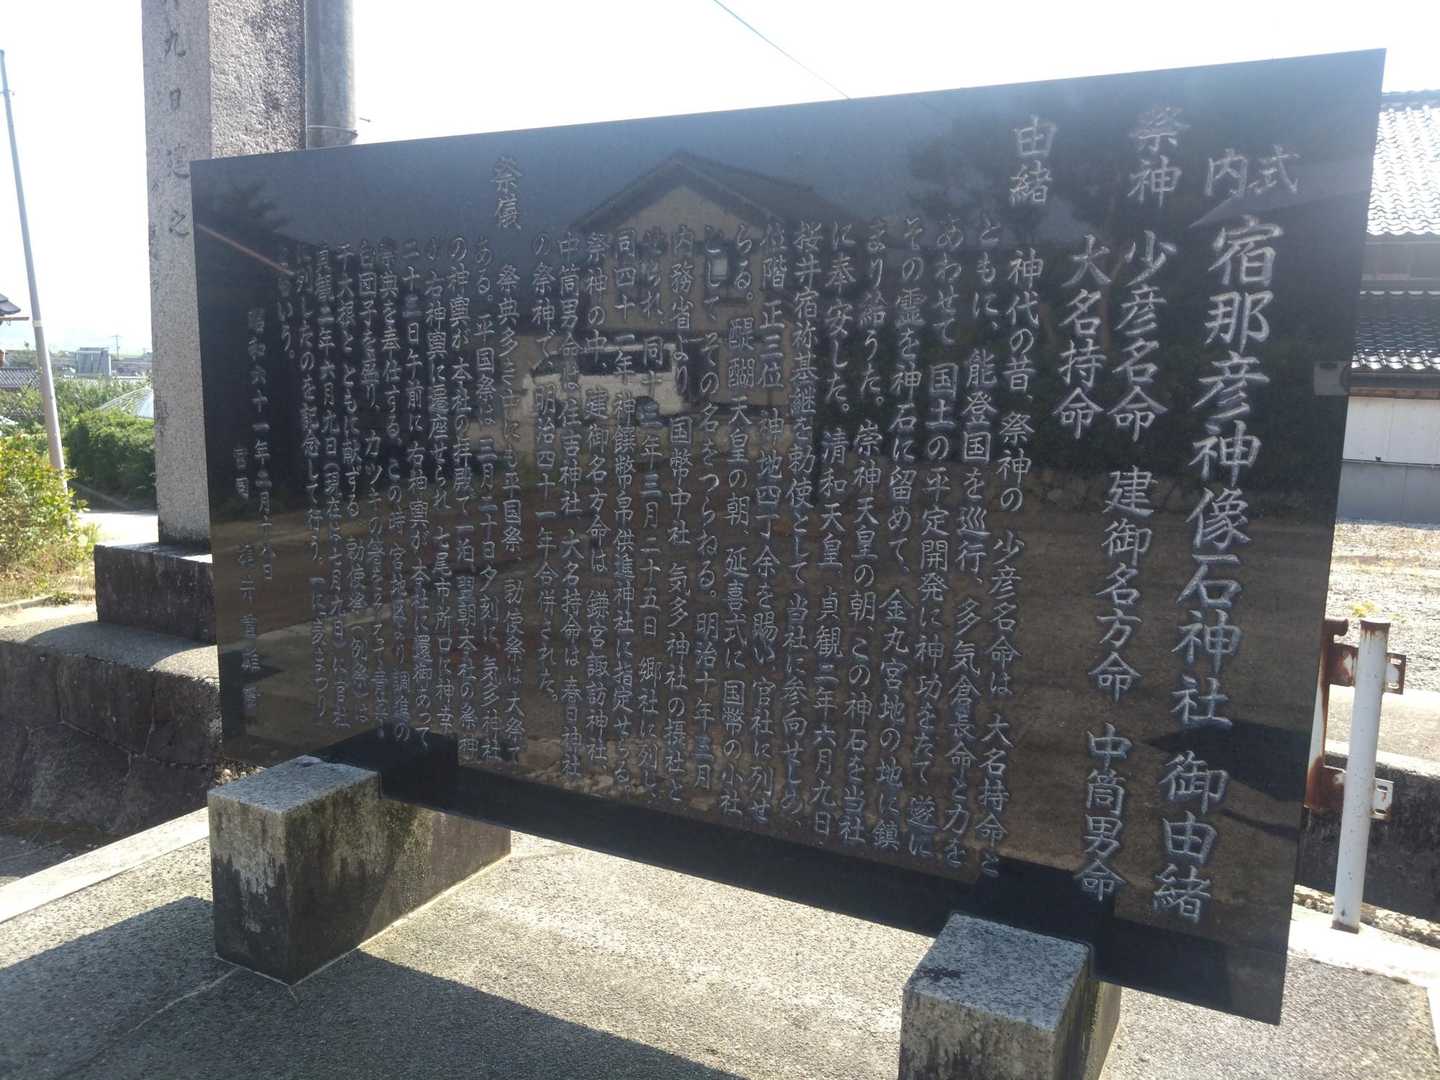 式内 宿那彦神像石神社 御由緒
祭神 少彦名命 建御名方命 中筒男命
大名持命
由緒
神代の昔、祭神の 少彦名命は 大名持命と
ともに、能登国を巡行、多気倉長命と力を
あわせて 国土の平定開発に神功をたて 遂に
その霊を神石に留めて、金丸宮地の地に鎮
まり給うた。崇神天皇の朝 この神石を当社
に奉安した。清和天皇 貞観二年六月九日
桜井宿祢基継を勅使として当社に参向せしめ
位階 正三位 神地四丁余を賜い 官社に列せ
らる。醍醐天皇の朝 延喜式に 国幣の小社
として その名をつらねる。明治十年三月
内務省より 国幣中社 気多神社の摂社と
せられ、同十三年三月二十五日 郷社に列し
同四十二年 神饌幣帛供進神社に指定せらる
祭神の中、建御名方命は 鎌宮諏訪神社
中筒男命は 住吉神社 大名持命は春日神社
の祭神で 明治四十一年合併された。
祭儀
祭典多き中にも平国祭 勅使祭は大祭で
ある。平国祭は 三月二十日夕刻に 気多神社
の神輿が 本社の拝殿で一泊 翌朝本社の祭神
が 右神輿に遷座せられ 七尾市所口に神幸
二十三日午前に 右神輿が本社に還御あって
祭典を奉仕する。この時 宮地区より調進の
白団子を盛り、カツキの
干大根と ともに献ずる 勅使祭(例祭)は
貞観二年六月九日(現在は七月九日)に官社
に列したのを記念して行う。
という。
昭和六十一年
九日建之